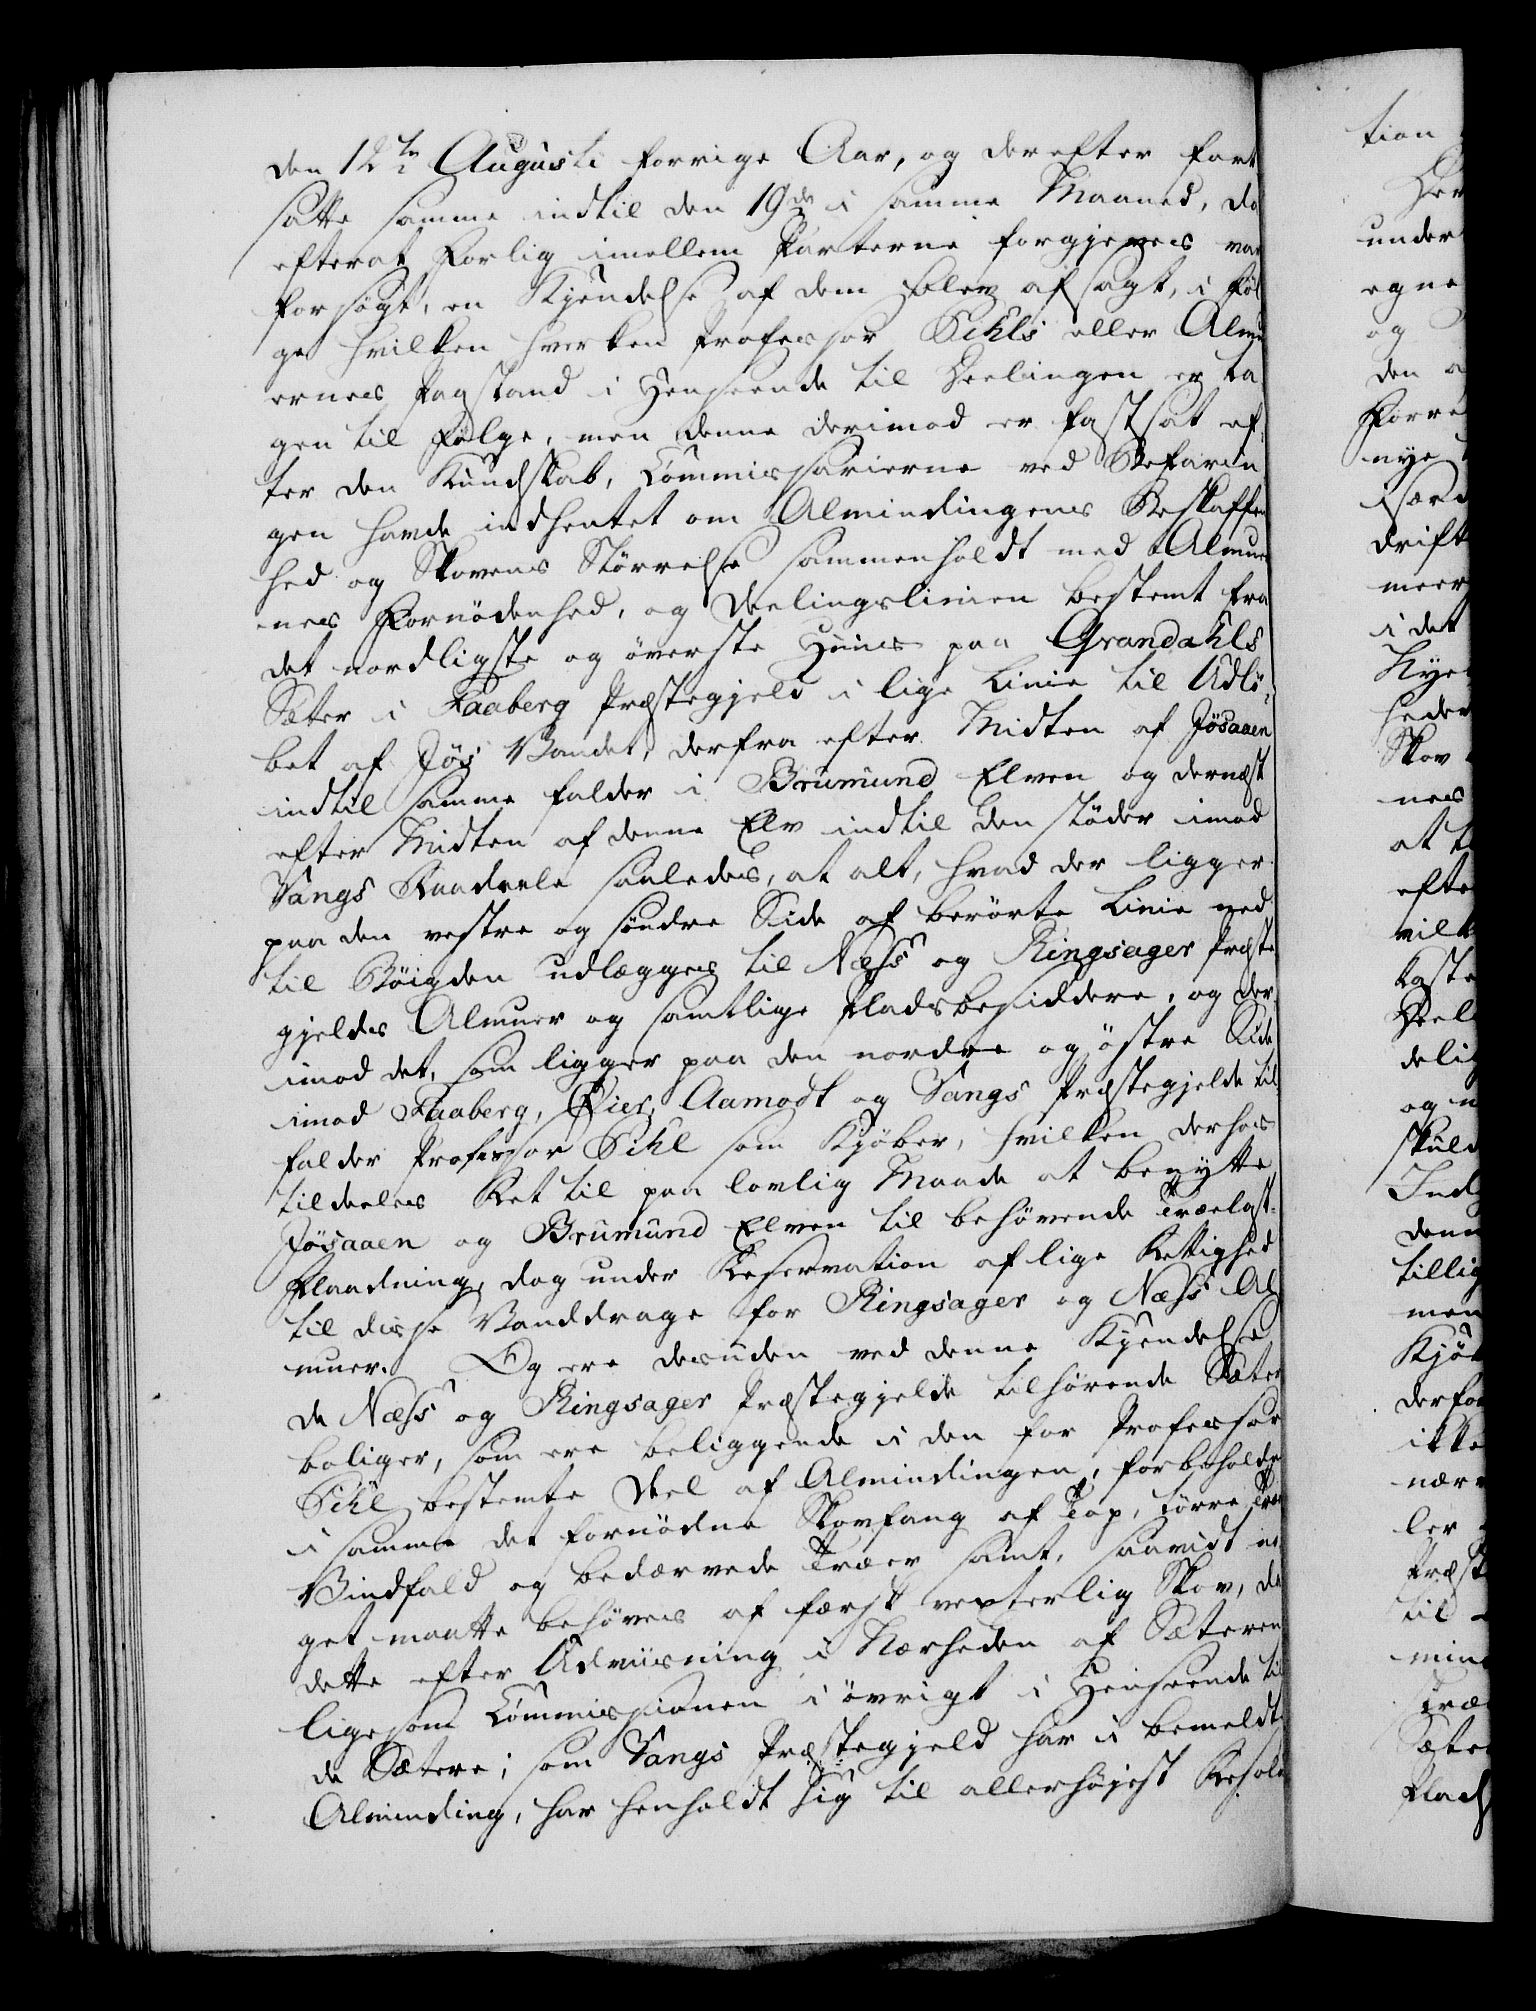 den 12te Augusti forrige Aar, og derefter fort
satte samme indtil den 19de i samme Maaned, da
efterat Forlig imellem Parterne forgjeves var
forsögt, en Kjendelse af dem blev afsagt, i föl
ge hvilken hverken Professor Pihls eller Almu
ernes Paastand i Henseende til Deelingen er ta
gen til Fölge, men denne derimod er fastsat ef
ter den Kundskab, Commissarierne ved Befarin
gen havde indhentet om Almindingens Beskaffen
hed og Skovens Störrelse sammenholdt med Almuer
nes Fornödenhed, og Deelingslinien bestemt fra
det nordligste og överste Huus paa Grandahls
Sæter i Faaberg Præstegjeld i lige Linie til Udlö
bet af Jös Vandet, derfra efter Midten af Jösaaen
indtil samme falder i Brumund Elven og dernæst
efter Midten af denne Elv indtil den stöder imod
Vangs Raadeele saaledes, at alt, hvad der ligger
paa den vestre og söndre Side af berörte Linie ned
til Böigden udlægges til Næss og Ringsager Præste
gjelds Almuer og samtlige Pladsbesiddere, og der
imod det, som ligger paa den nordre og östre Side
imod Faaberg, Öier, Aamodt og Vangs Præstegjelde til
falder Professor Pihl som Kjöber, hvilken derhos
tildeeles Ret til paa lovlig Maade at benytte
Jösaaen og Brumund Elven til behövende Trælast-
Flaadning, dog under Reservation af lige Rettighed
til disse Vanddrage for Ringsager og Næss Al
muer. Og ere desuden ved denne Kjendelse
de Næss og Ringsager Præstegjelde tilhörende Sæter
boliger, som ere beliggende i den for Professor
Pihl bestemte Deel af Almindingen, forbeholdne
i samme det fornödne Skovfang af Top, törre Træer
Vindfald og bedærvede Træer samt, saavidt no
get maatte behöves af færsk vexterlig Skov, da
dette efter Udviisning i Nærheden af Sæteren
ligesom Commissionen i övrigt i Henseende til
de Sætere, som Vangs Præstegjeld har i bemeldte
Alminding, har henholdt sig til allerhöjest Resolu